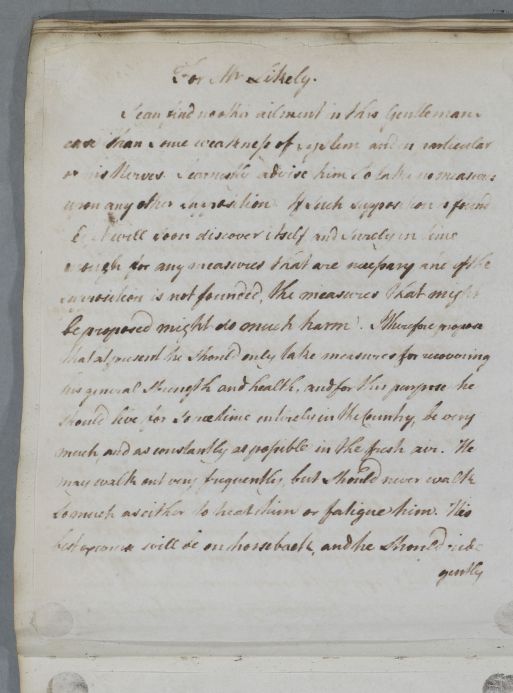 For Mr Likely.
I can find no other ailment in this Gentlemans
case than some weakness of system and in particular
of his Nerves. I earnestly advise him to take no measures
upon any other supposition. If such supposition is found
it will soon discover itself and surely in time
enough for any measures that are necessary and if the
supposition is not founded, the measures that might
be proposed might do much harm. I therefore propose
that at present he should only take measures for recovering
his general strength and health, and for this purpose he
should live for some time entirely in the Country, be very
much, and as constantly as possible in the fresh air. He
may walk out very frequently, but should never walk
so much as either to heat him or fatigue him. His
best exercise will be on horseback, and he should ride
gently